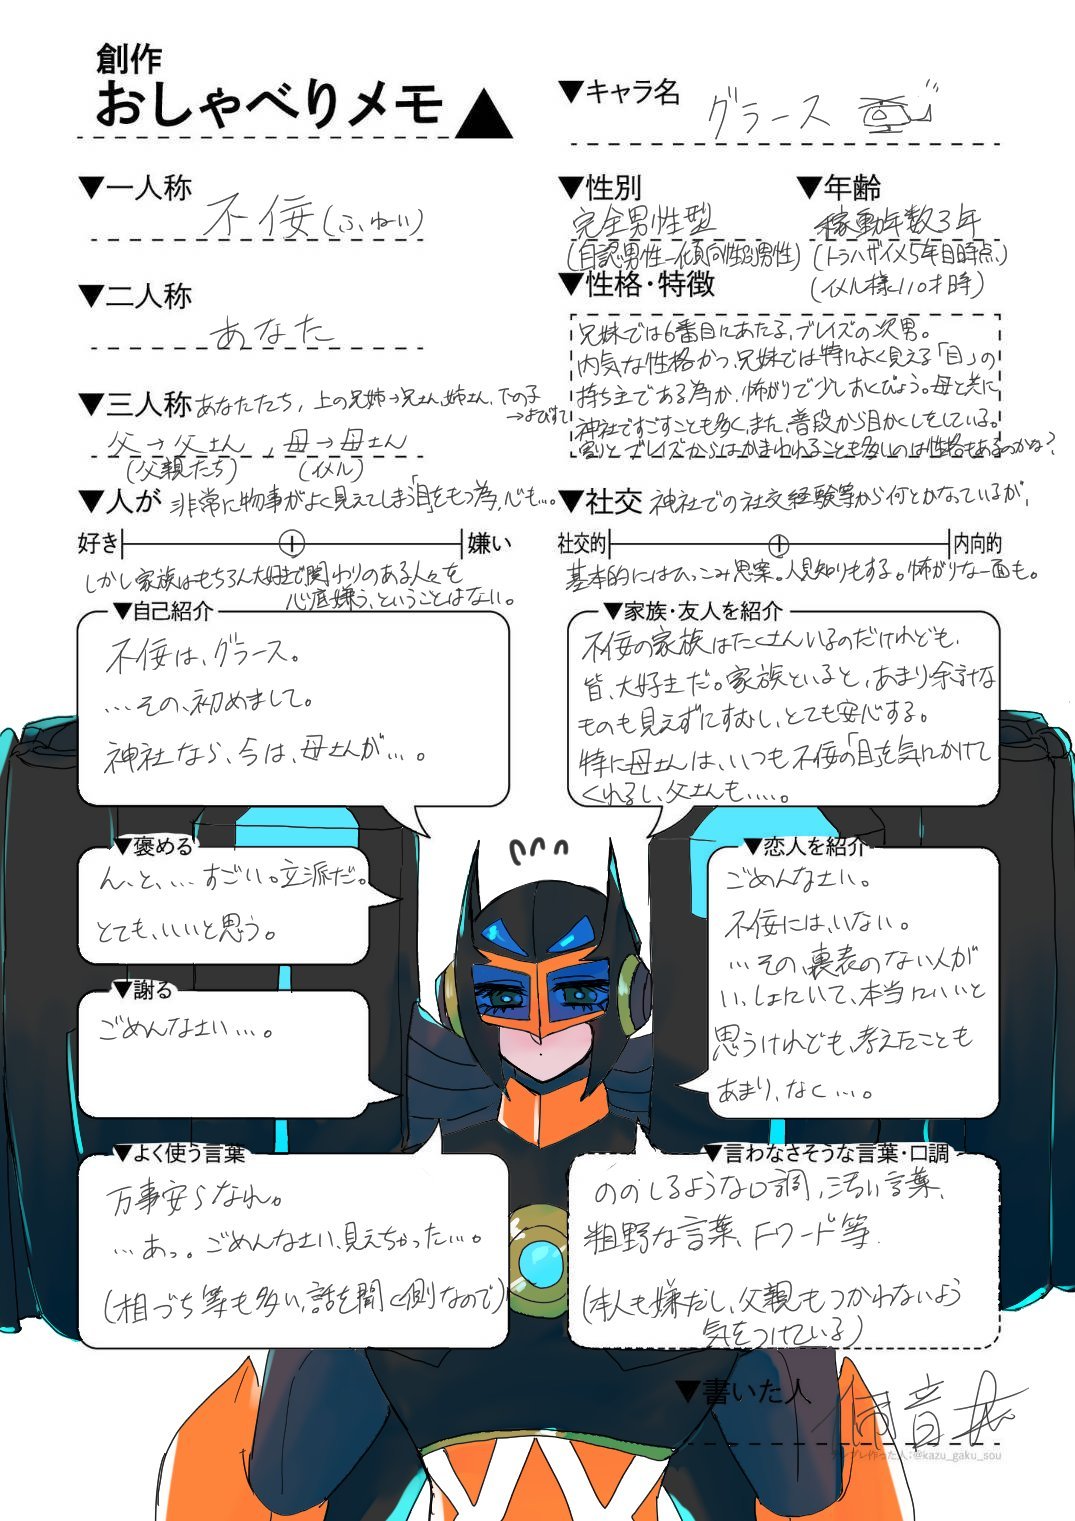 創作
おしゃべりメモ▲
▼キャラ名
グラース
▼一人称
不佞(ふねい)
▼性別
完全男性型
(自認男性-傾向性別男性)
▼年齢
稼動年数3年
(トラハザイメ5年目時点)
(イメル様110才時)
▼二人称
あなた
▼性格・特徴
兄妹では6番目にあたる子、ブレイズの次男。
内気な性格かつ、兄妹では特によく見える「目」の
持ち主である為か、怖がりで少しおくびょう。母と共に
神社ですごすことも多く、また、普段から目かくしをしている。
割りとブレイズからはかまわれることも多いのは性格もあるのかな?
▼三人称 あなたたち, 上の兄姉→兄さん、姉さん、下の子
→よびすて
父→父さん, 母→母さん
(父親たち) (イメル)
▼人が 非常に物事がよく見えてしまう「目」をもつ為、心も…。
好き 嫌い
しかし家族はもちろん大好きで関わりのある人々を
心底嫌う、ということはない。
▼社交 神社での社交経験等から何とかなっているが、
社交的 内向的
基本的にはひっこみ思案。人見知りもする。怖がりな一面も。
▼自己紹介
不佞は、グラース。
…その、初めまして。
神社なら、今は、母さんが…。
▼家族・友人を紹介
不佞の家族はたくさんいるのだけれども、
皆、大好きだ。家族といると、あまり余計な
ものも見えずにすむし、とても安心する。
特に母さんは、いつも不佞の「目」を気にかけて
くれるし、父さんも…。
▼褒める
ん、と、…すごい。立派だ。
とても、いいと思う。
▼恋人を紹介
ごめんなさい。
不佞には、いない。
…その、裏表のない人が
い、しょにいて、本当にいいと
思うけれども、考えたことも
あまり、なく…。
▼謝る
ごめんなさい…。
▼よく使う言葉
万事安らなれ。
…あっ。ごめんなさい、見えちゃった…。
(相づち等も多い、話を聞く側なので)
▼言わなさそうな言葉・口調
ののしるような口調, 汚い言葉、
粗野な言葉、Fワード等.
(本人も嫌だし、父親もつかわないよう
気をつけている)
▼書いた人
テンプレ作った人:@kazu_gaku_sou